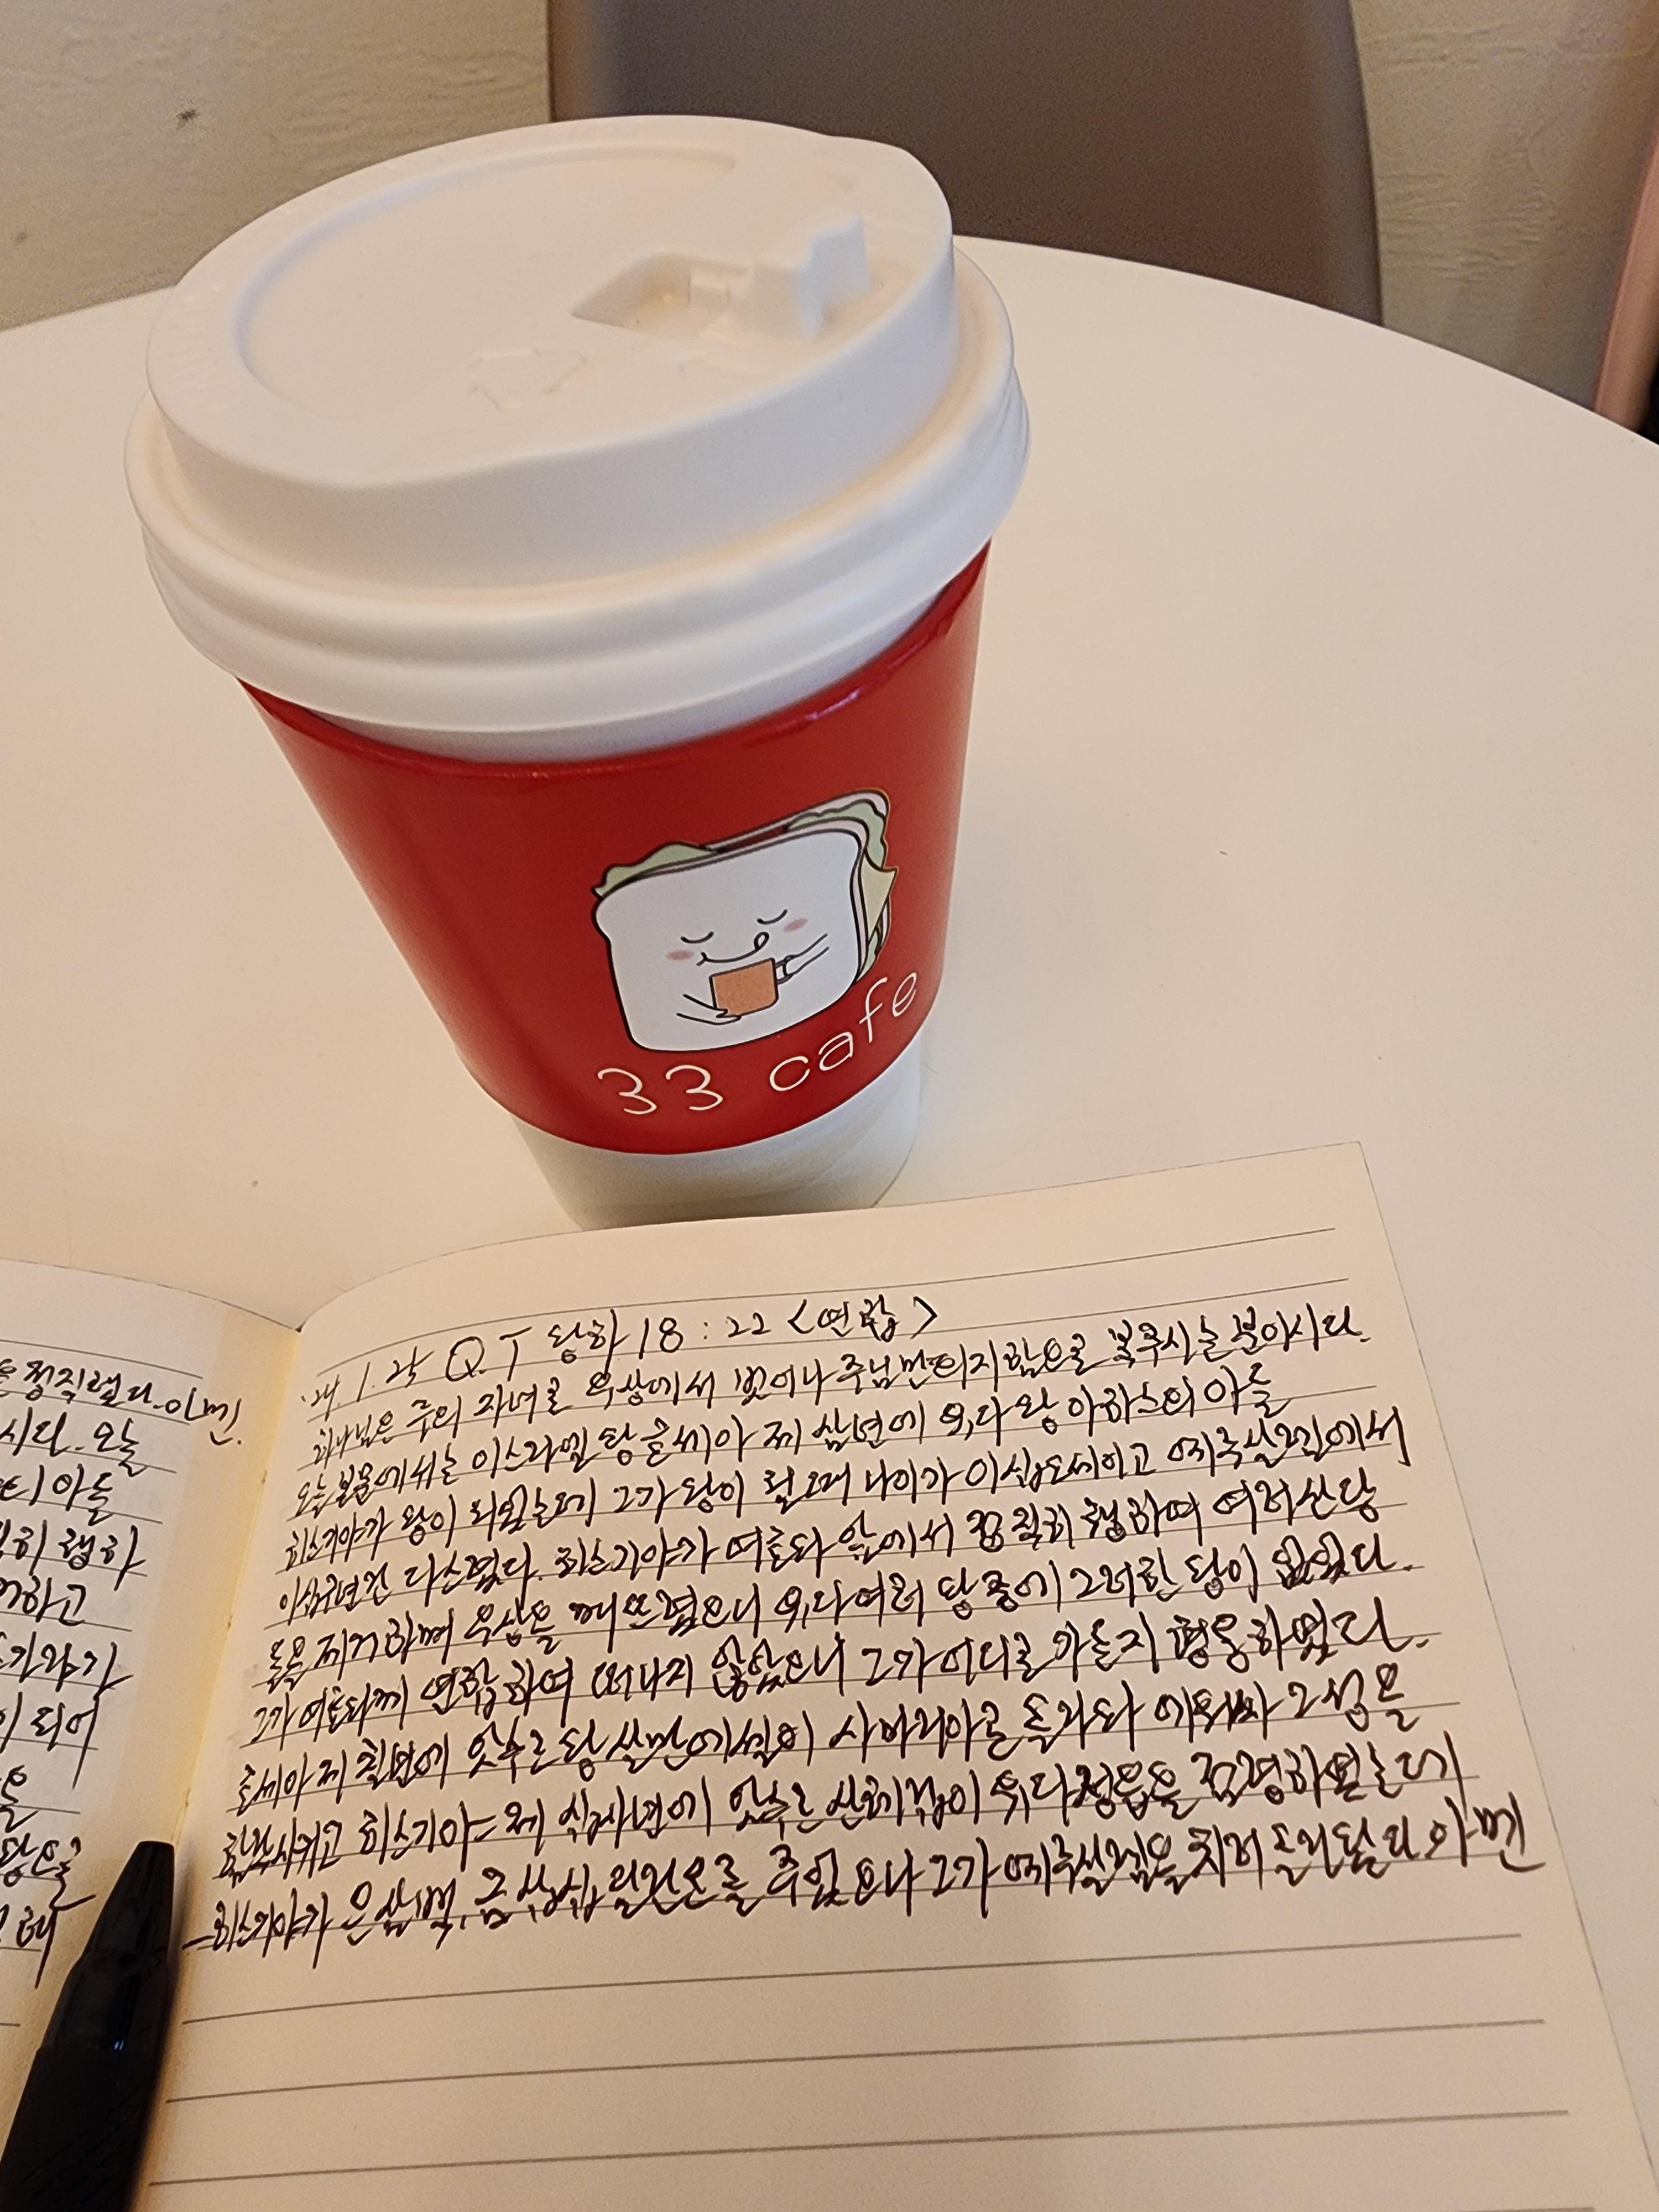 33 cafe
은 정직했다. 아멘.
시다. 오늘
의 아들
히 행하
하고
이 되어
'24. 1. 25 Q.T 왕하 18 : 22 <연합>
하나님은 주의 자녀로 우상에서 벗어나 주님만 의지함으로 복주시는 분이시다.
오늘 본문에서는 이스라엘 왕 호세아 제 삼년에 유다 왕 아하스의 아들
히스기야가 왕이 되었는데 그가 왕이 될 때 나이가 이십오세이고 예루살렘에서
이십구년간 다스렸다. 히스기야가 여호와 앞에서 정직히 행하며 여러 산당
들을 제거하며 우상을 깨뜨렸으니 유다 여러 왕 중에 그러한 왕이 없었다.
그가 여호와께 연합하여 떠나지 않았으니 그가 어디로 가든지 형통하였다.
호세아 제 칠년에 앗수르 왕 살만에셀이 사마리아로 올라와 에워싸 그 성을
함락시키고 히스기야 제 십사년에 앗수르 산헤립이 유다 성읍을 점령하였는데
히스기야가 은 삼백, 금 삼십 달란트를 주었으나 그가 예루살렘을 치러 올라왔다 아멘